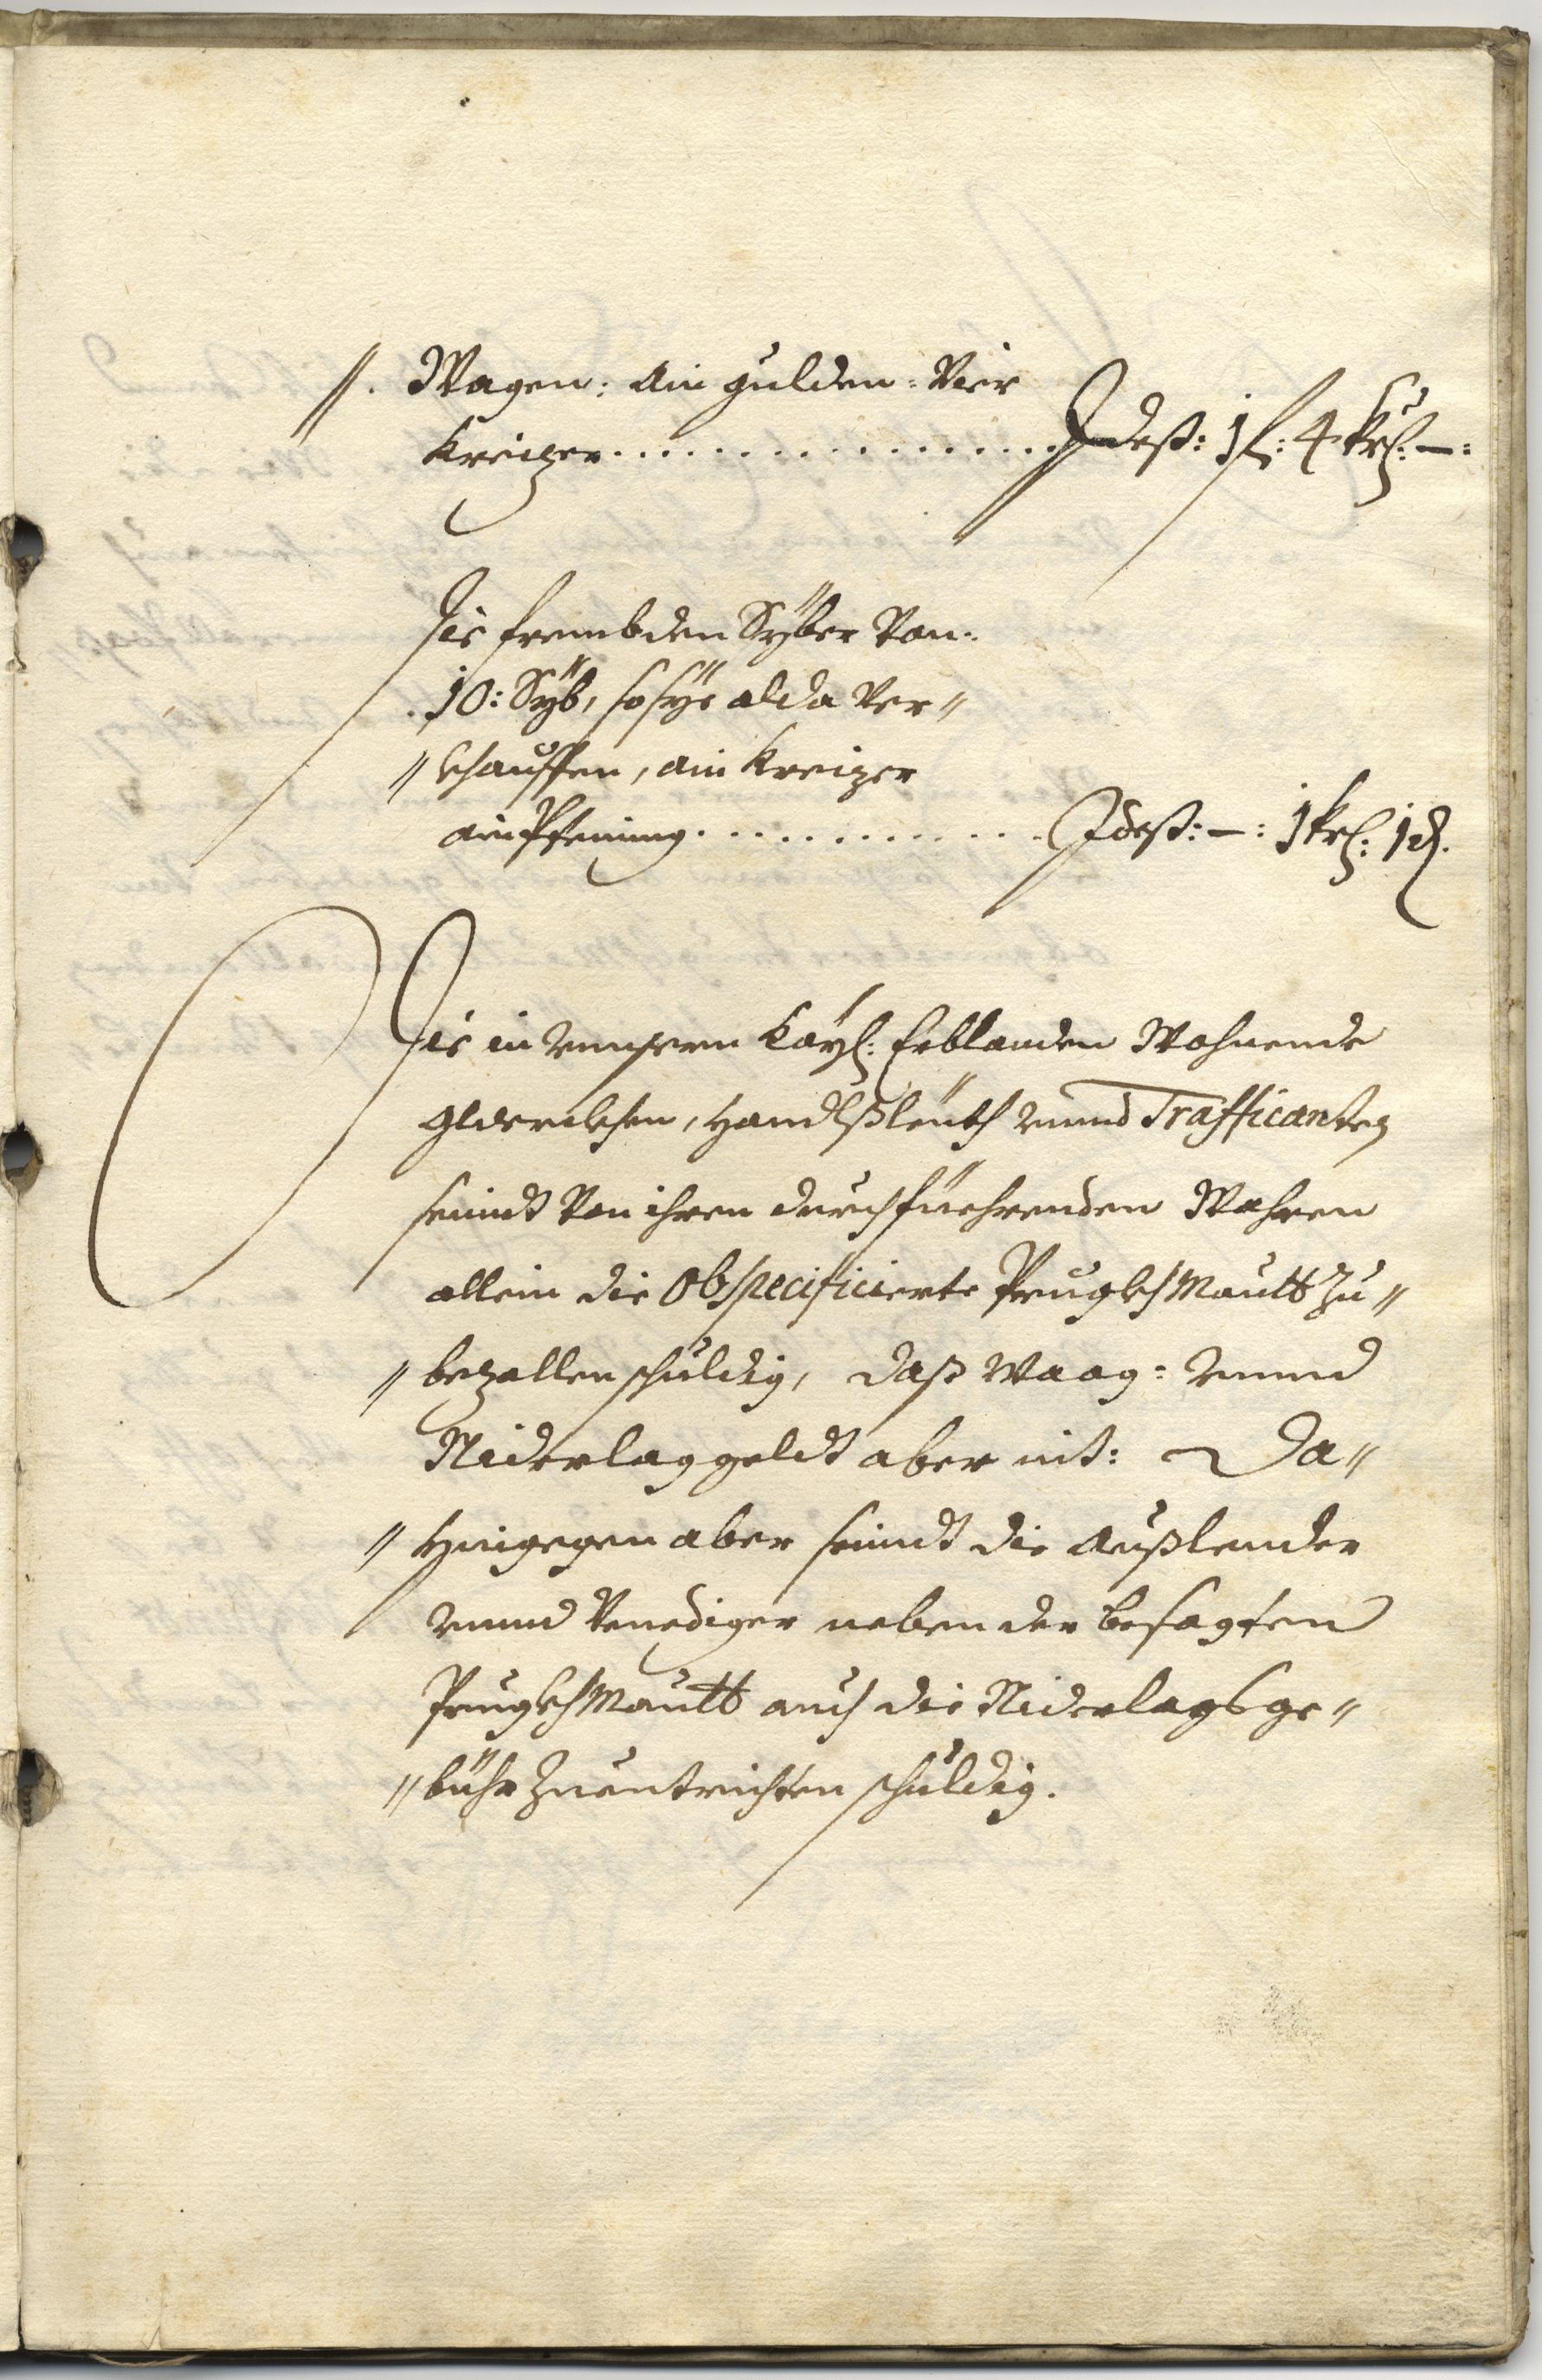 //. Wagen: Ain gulden: Vier
Kreizer. . . . . . . . . . . . . . . . . Idest: 1 fl: 4 krl: —:
Die frembden Sÿber Von:
10: Sÿb, so sÿe alda Ver//
//khauffen, ain Kreizer
ain Pfening. . . . . . . . . . . . . Idest: —: 1 krl: 1 d.
Die in unnsern Kaÿl: Erblanden Wohnende
Handlßleüth unnd Trafficanten
seindt Von ihren durchfüehrenden Wahren
allein die Obspecificierte PruggkhMautt zu//
//bezallen schuldig, daß Waag: unnd
Niderlaggeldt aber nit: Da//
//Hingegen aber seindt die Außlender
unnd Venediger neben der besagten
PruggkhMautt auch die Niderlagsge//
//bühr zu entrichten schuldig.